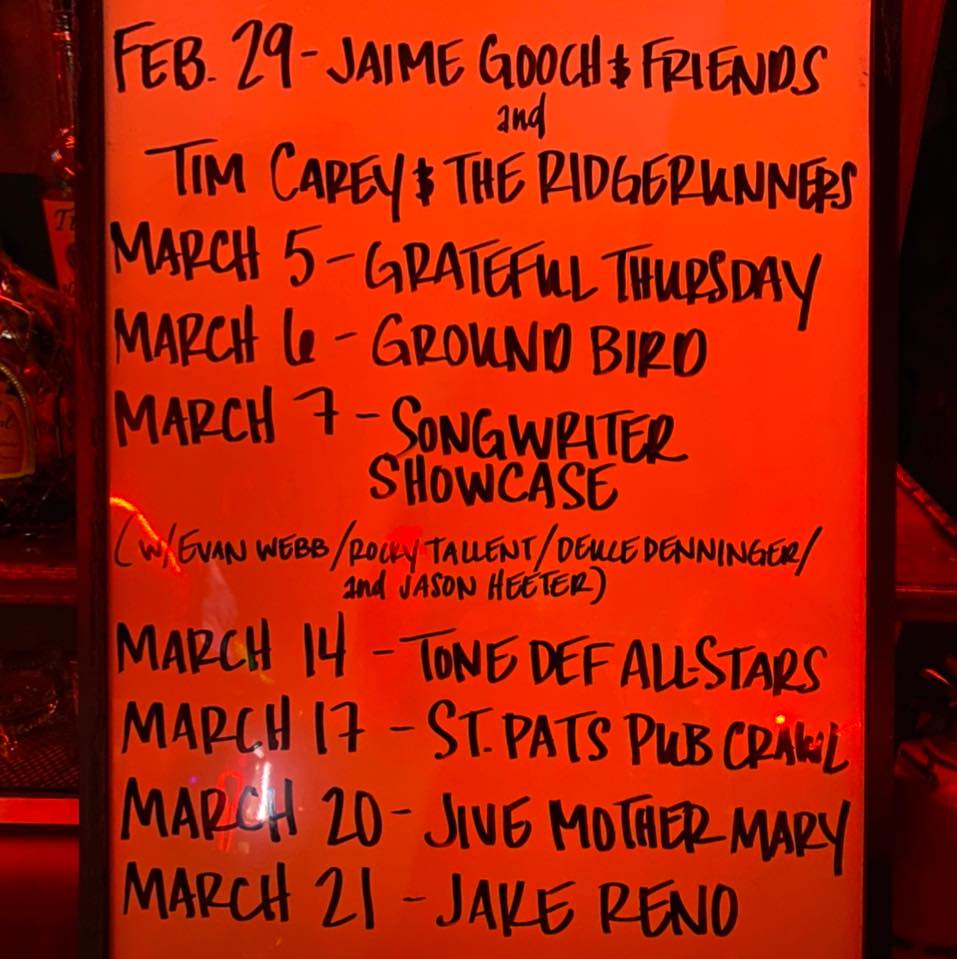 FEB. 29 - JAIME GOOCH & FRIENDS
and
TIM CAREY & THE RIDGERUNNERS
MARCH 5 - GRATEFUL THURSDAY
MARCH 6 - GROUND BIRD
MARCH 7 - SONGWRITER
SHOWCASE
(W/EVAN WEBB/ROCKY TALLENT/DEKLE DENNINGER/
and JASON HEETER)
MARCH 14 - TONE DEF ALL-STARS
MARCH 17 - ST. PATS PUB CRAWL
MARCH 20 - JIVE MOTHER MARY
MARCH 21 - JAKE RENO